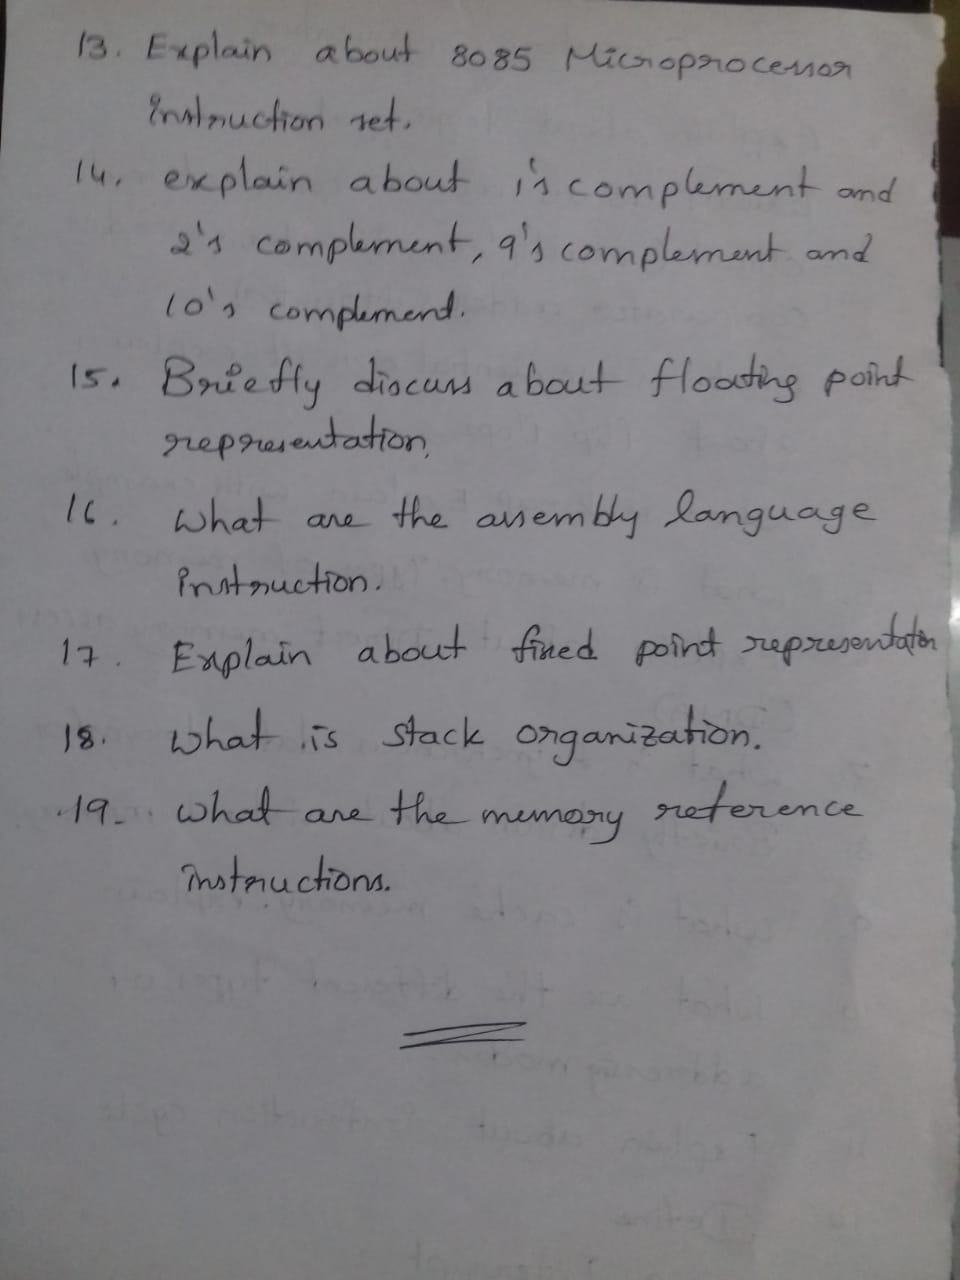 13. Explain about 8085 Microprocessor
instruction set.
14. explain about 1's complement and
2's complement, 9's complement and
10's complement.
15. Briefly discuss about floating point
representation.
16. What are the assembly language
instruction.
17. Explain about fixed point representation
18. What is stack organization.
19. What are the memory reference
instructions.